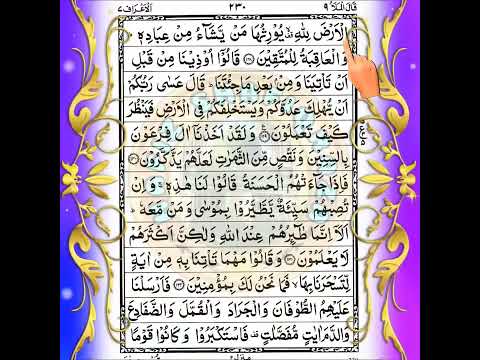 قَالَ الْمَلَاُ ٩ ٢٣٠ الْاَعْرَاف ٧
الْاَرْضَ لِلّٰهِ ۙ يُوْرِثُهَا مَنْ يَّشَآءُ مِنْ عِبَادِهٖ ؕ
وَالْعَاقِبَةُ لِلْمُتَّقِيْنَ ﴿۱۲۸﴾ قَالُوْٓا اُوْذِيْنَا مِنْ قَبْلِ
اَنْ تَاْتِيَنَا وَمِنْۢ بَعْدِ مَا جِئْتَنَا ؕ قَالَ عَسٰى رَبُّكُمْ
اَنْ يُّهْلِكَ عَدُوَّكُمْ وَيَسْتَخْلِفَكُمْ فِى الْاَرْضِ فَيَنْظُرَ
كَيْفَ تَعْمَلُوْنَ ﴿۱۲۹﴾ وَلَقَدْ اَخَذْنَآ اٰلَ فِرْعَوْنَ
بِالسِّنِيْنَ وَنَقْصٍ مِّنَ الثَّمَرٰتِ لَعَلَّهُمْ يَذَّكَّرُوْنَ ﴿۱۳۰﴾
فَاِذَا جَآءَتْهُمُ الْحَسَنَةُ قَالُوْا لَنَا هٰذِهٖ ۚ وَاِنْ
تُصِبْهُمْ سَيِّئَةٌ يَّطَّيَّرُوْا بِمُوْسٰى وَمَنْ مَّعَهٗ ؕ
اَلَآ اِنَّمَا طٰٓئِرُهُمْ عِنْدَ اللّٰهِ وَلٰكِنَّ اَكْثَرَهُمْ
لَا يَعْلَمُوْنَ ﴿۱۳۱﴾ وَقَالُوْا مَهْمَا تَاْتِنَا بِهٖ مِنْ اٰيَةٍ
لِّتَسْحَرَنَا بِهَا ۙ فَمَا نَحْنُ لَكَ بِمُؤْمِنِيْنَ ﴿۱۳۲﴾ فَاَرْسَلْنَا
عَلَيْهِمُ الطُّوْفَانَ وَالْجَرَادَ وَالْقُمَّلَ وَالضَّفَادِعَ
وَالدَّمَ اٰيٰتٍ مُّفَصَّلٰتٍ ۟ فَاسْتَكْبَرُوْا وَكَانُوْا قَوْمًا